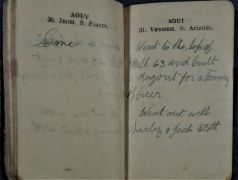 AOUT
30. JEUDI. S. FIACRE.
Same
AOUT
31. VENDREDI. S. Aristide.
Went to the top of
Hill 63 and built
dugout for a Tommy
Officer
Went out with
Charley & Jack Scott